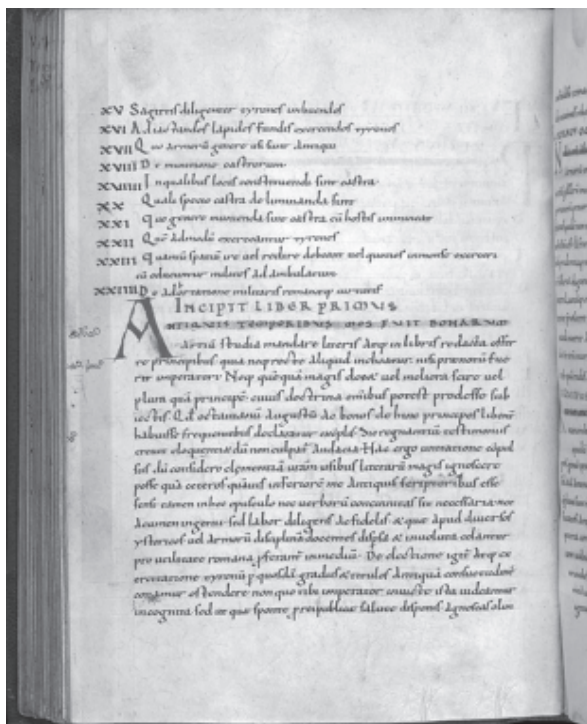 XV Sagittis diligenter tyrones imbuendos
XVI Ad iactandos lapides fundis exercendos tyrones
XVII Quo armorũ genere usi sunt Antiqui
XVIII De munitione castrorum
XVIIII In qualibus locis constituenda sint castra
XX Quali specie castra delimitanda sint
XXI Quo genere munienda sint castra cũ hostis imminet
XXII Quẽ admodũ exerceantur tyrones
XXIII Quantũ spaciũ ire vel redire debeant vel quoties in mense exerceri
cũ educuntur milites ad ambulatum
XXIIII De adortatione militaris romaneque
INCIPIT LIBER PRIMUS
ANTIQUIS TEMPORIBUS MOS FUIT BONARUM
Artiũ studia mandare litteris atq in libris redacta offer
re principibus quia neq recte aliquid inchoatur nisi fue
rit imperator Neq quẽquã magis docet vel meliora scire vel
plura quã principẽ cuius doctrina omibus potest prodesse sub
iectis. Qd octavianũ Augustũ ac bonos de hinc principes libent
habuisse frequentibus declaratur exẽplis Sic regnantiũ testimoniis
crevit eloquentia dũ non culpatur Audacia Hac ergo cõpul
sus dũ considero clementiã usibus litterarũ magis ignoscere
posse quã ceteros inferiorẽ me Antiquis scriptoribus esse
sensi tamen in hoc opusculo nec verborũ concinnitas sit necessaria nec
acumen ingenii sed labor diligens ac fidelis ut que apud diversos
ystoricos vel armorũ disciplinã docentes dispsa et involuta celantur
pro utilitate romana pferant in mediũ De electione igit atq ex
ercitatione tyronũ p quosdã gradus et titulos antiquã consuetudinẽ
conamur ostendere non quo tibi imperator invicte ista videantur
incognita sed ut que sponte preipublice salute disponis agnoscas olim